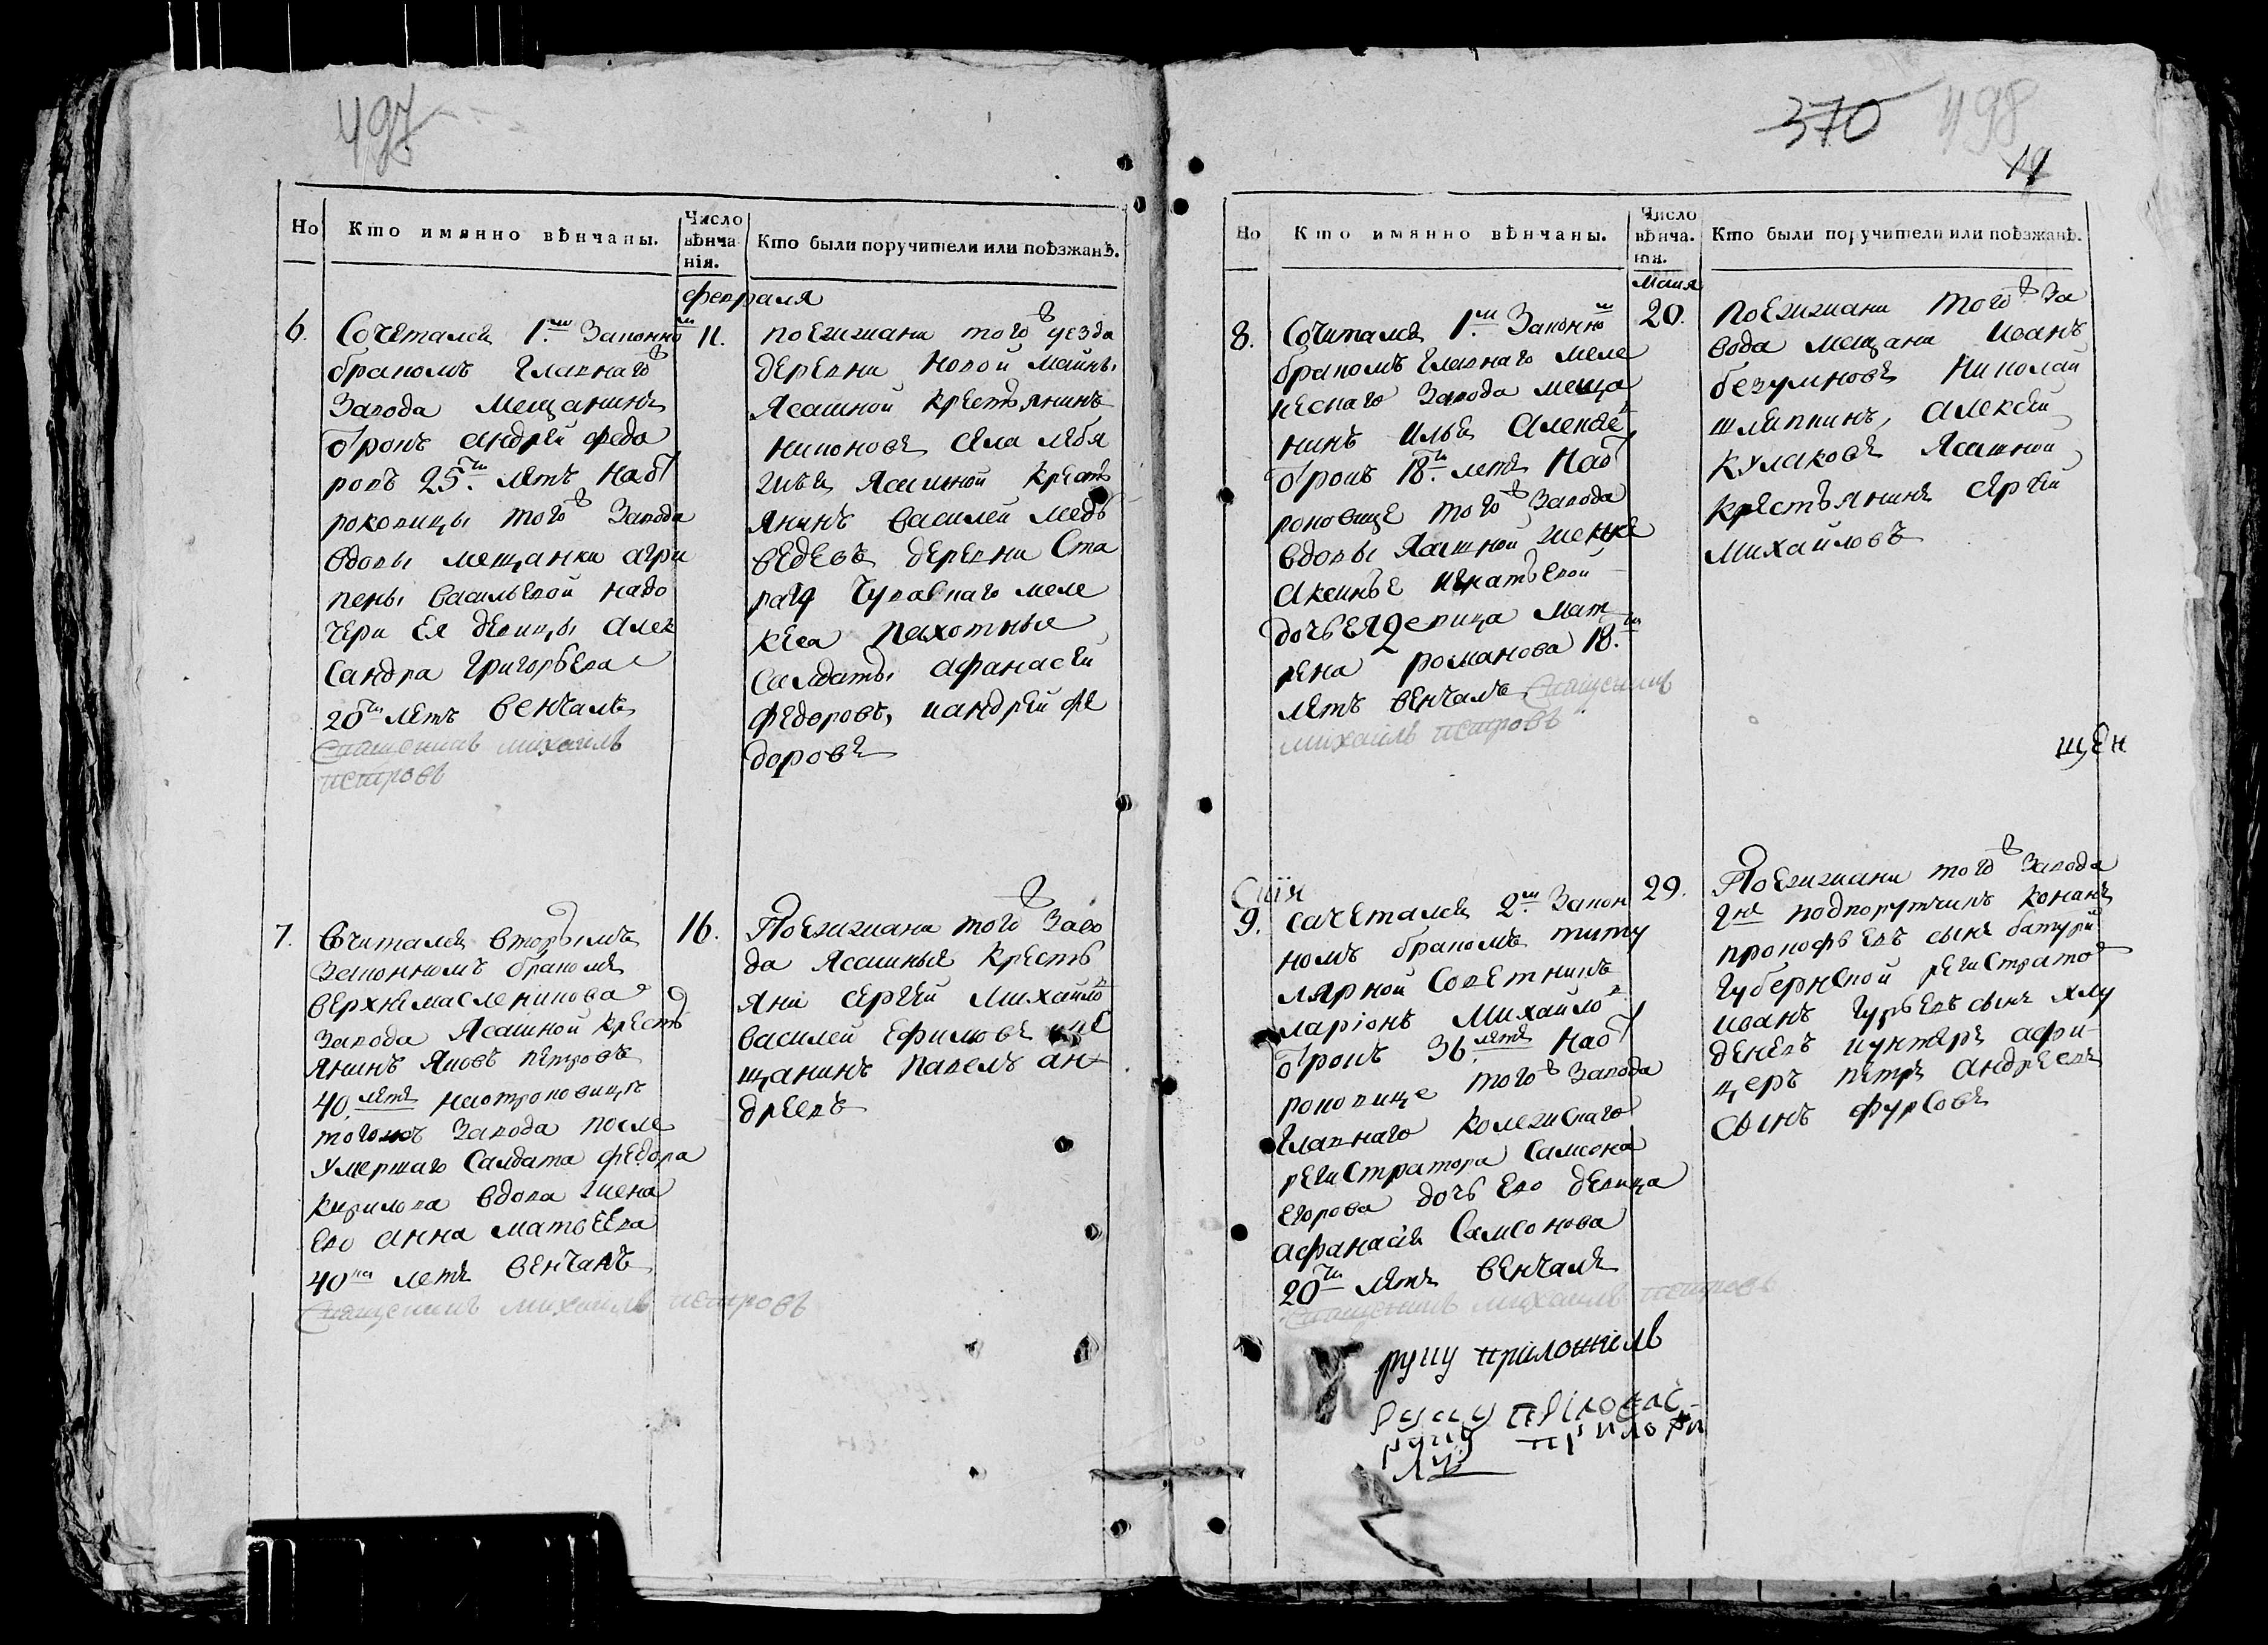 497
Но
Кто имянно вѣнчаны.
Число вѣнча нія.
Кто были поручители или поѣзжанѣ.
февраля
6.
Сочетался 1.м Законно м
бракомъ Главнаго
Завода мещанинъ
отрокъ андрей федо
ровъ 25.ти летъ на от
роковицы того ж Завода
вдовы мещанки агри
пены васильевой на до
чери ея девицы алек
сандра григорьева
20ти летъ венчалъ
священикъ михаилъ
петровъ
11.
поезжани того ж уезда
деревни новой майны
Ясашной крестьянинъ
никоновъ села лебя
жья Ясашной кресть
янинъ василей медь
ведевъ деревни Ста
раго меле
кеса пахотные
салдаты афанасей
федоровъ, и андрей фе
доровъ
7.
Сочитался вторымъ
законномъ бракомъ
верхнемасленикова
завода Ясашной кресть
янинъ Яковъ петровъ
40. летъ на отроковицъ
того жъ Завода после
умершаго Салдата федора
кирилова вдова жена
ево анна матвеева
40ка летъ венчалъ
Священикъ михаилъ петровъ
16.
Поезжани того ж Заво
да Ясашные кресть
яни сергей Михайло в
василей Ефимовъ и ме
щанинъ павелъ ан
дреевъ
370 498
19
Но
Кто имянно вѣнчаны.
Число вѣнча. нія.
Кто были поручители или поѣзжанѣ.
Маия
8.
Сочитался 1.м Законно м
бракомъ Главнаго меле
кескаго Завода меща
нинъ Илья Алексее в
отрокъ 18.ти летъ На от
роковице того ж Завода
вдовы Ясашной женке
Аксинье игнатьевой
дочь ея девица мат
рена романова 18.ти
летъ венчалъ Священикъ
михаилъ петровъ
20.
поезжани того ж За
вода мещани Иванъ
безумновъ Николай
шляпкинъ, алексей
кулаковъ Ясашной
крестьянинъ сергей
Михайловъ
щен
9.
сачетался 2.м Закон
номъ бракомъ титу
лярной Советникъ
ларіонъ Михайло в
отрокъ 36 летъ На от
роковице того ж Завода
Главнаго колежскаго
регистратора Самсона
егорова дочь ево девица
афанасія Самсонова
20ти летъ венчалъ
Священикъ михаилъ петровъ
29.
Поезжани того ж Завода
Гнъ подпорутчикъ конанъ
прокофьевъ сынъ батури
Губернской регистрато
иванъ Гурьевъ сынъ
пётръ андреевъ
сынъ фурсовъ
руку приложилъ
руку
руку приложи
лъ